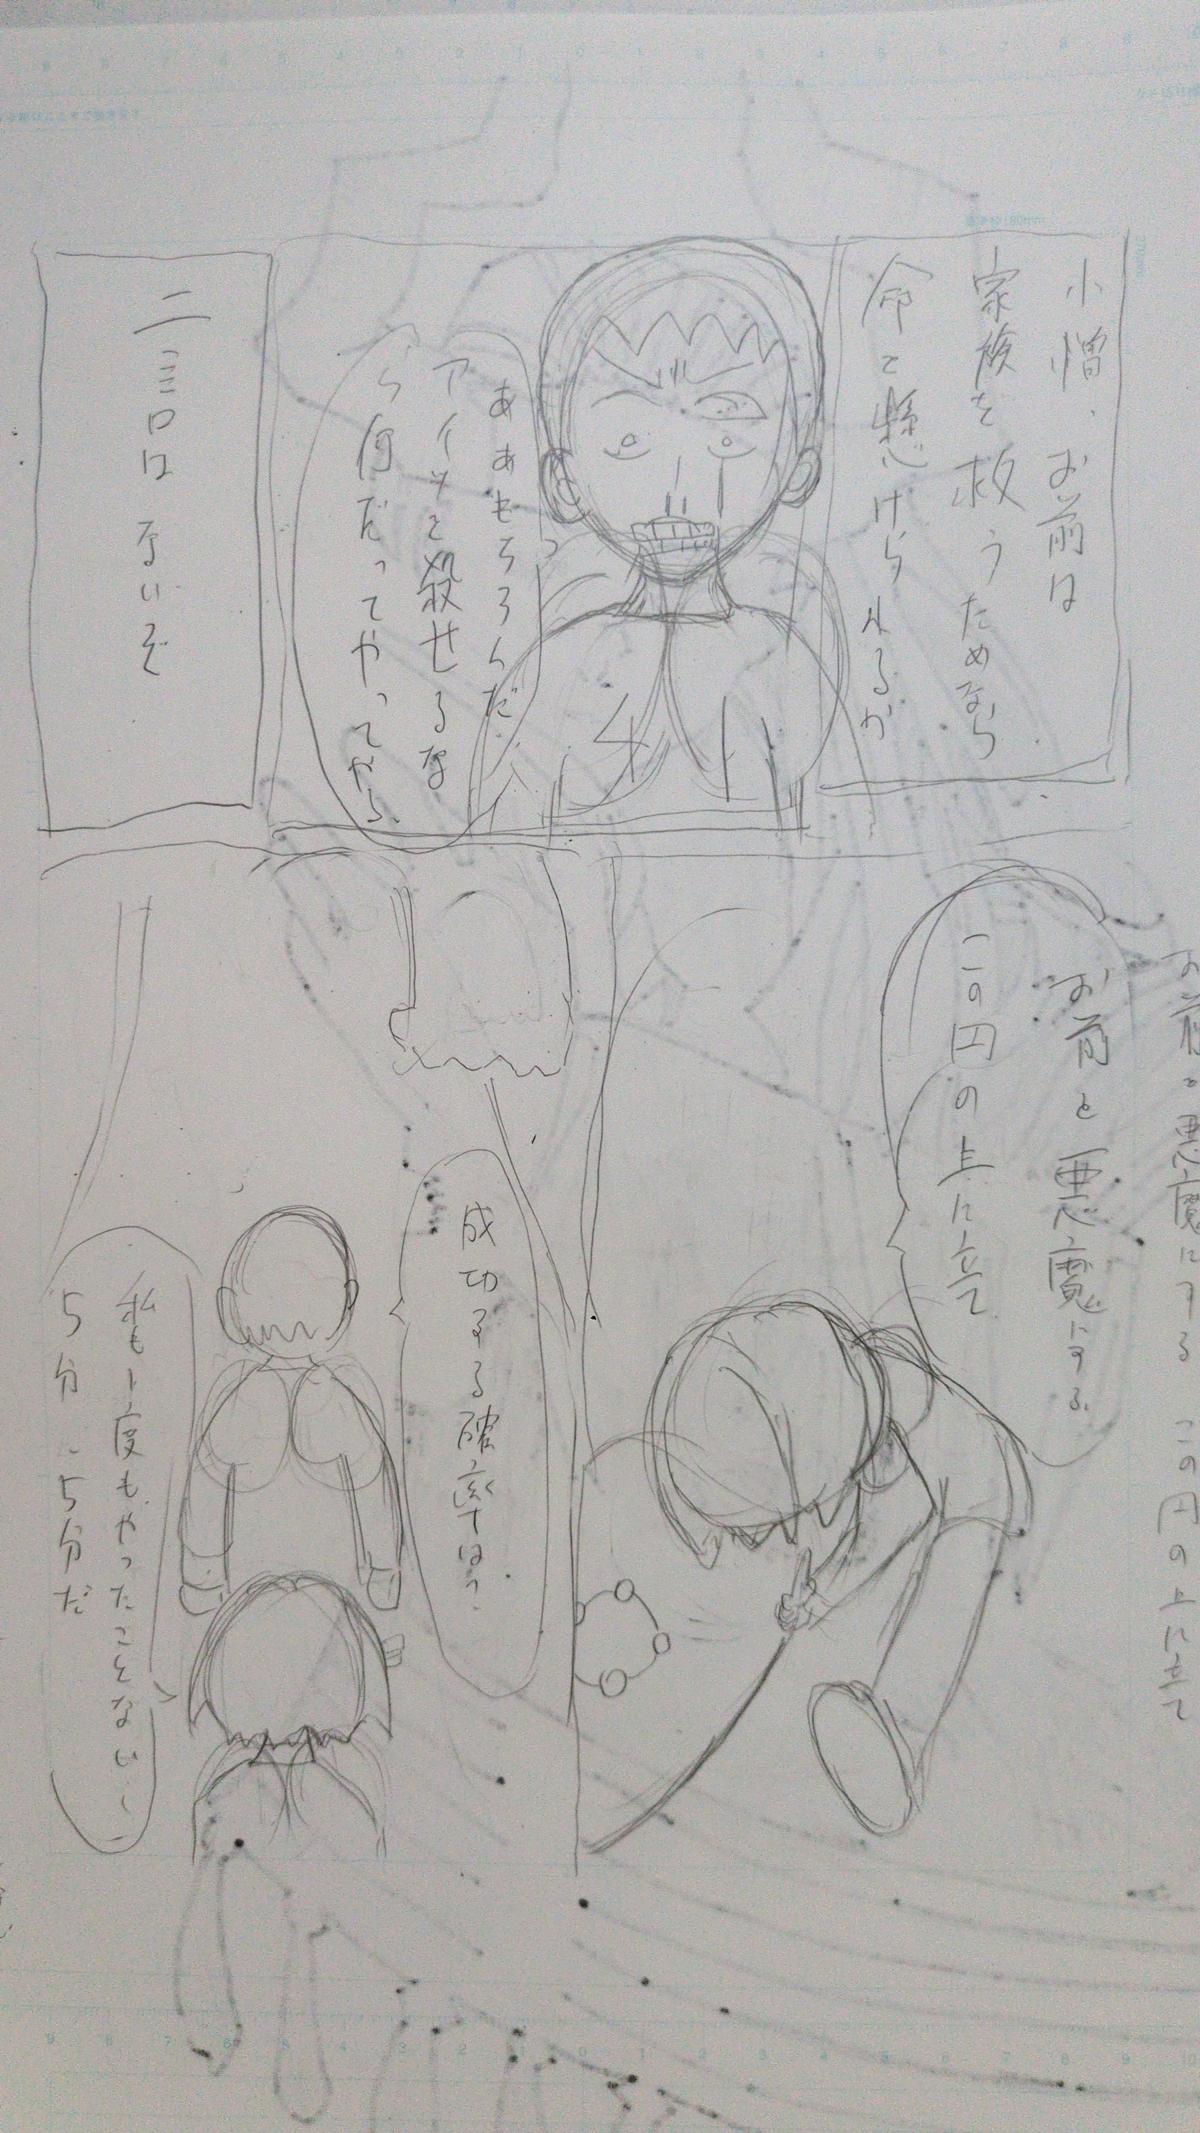 小憎、お前は
家族を救うためなら
命を懸けられるか
ああもちろんだ
アイツを殺せるな
ら何だってやってやる
二言はないぞ
お前を悪魔にする この円の上に立て
お前を悪魔にする
この円の上に立て
成功する確率は?
私も1度もやったことない
5分 5分だ